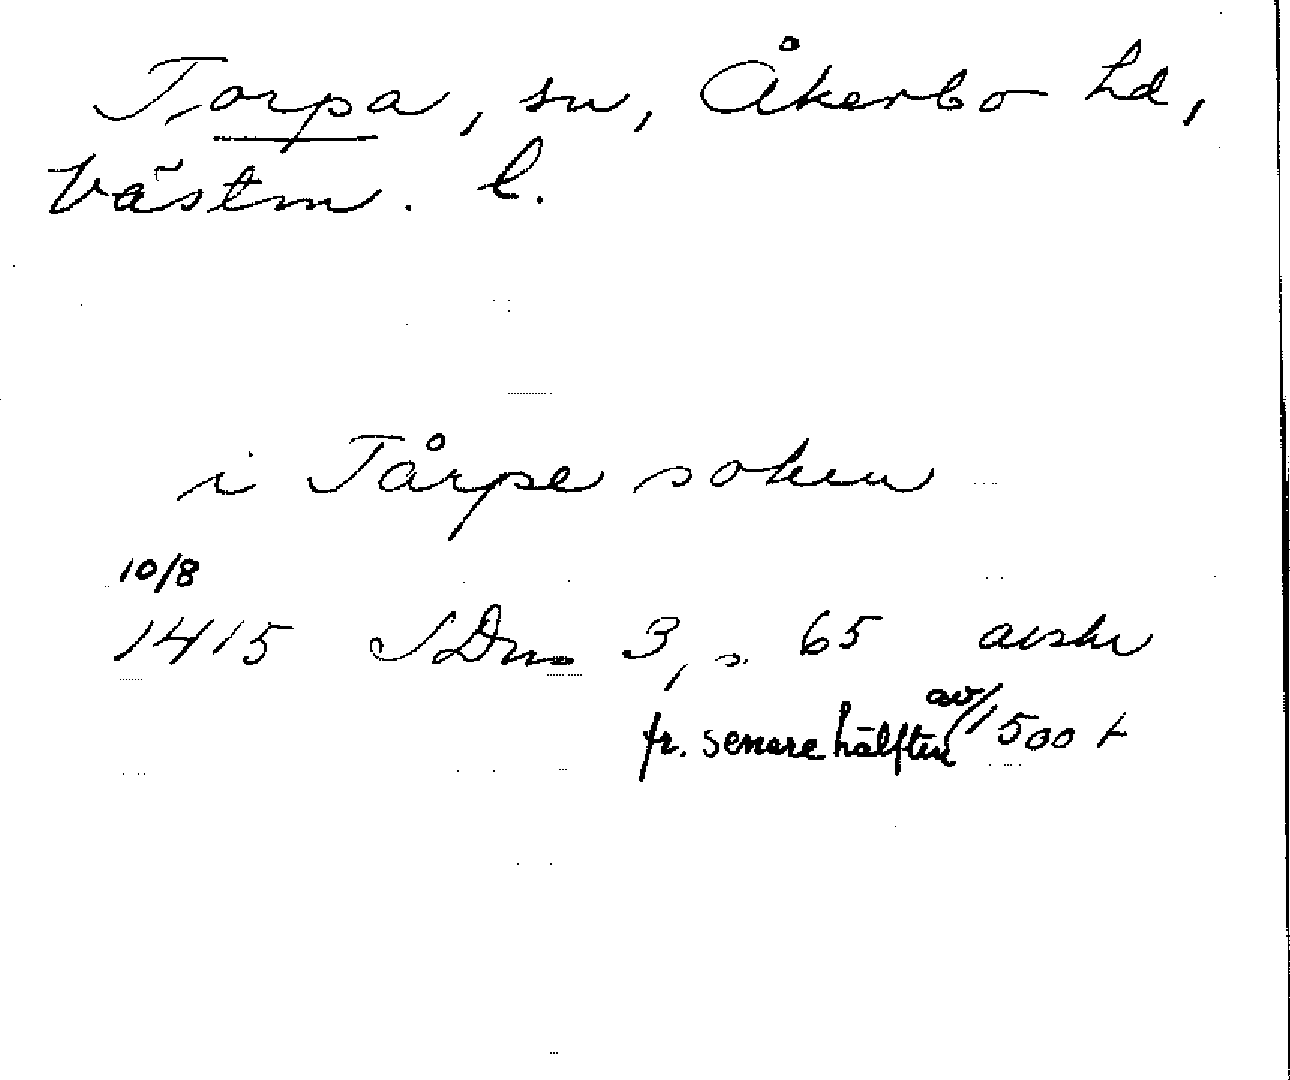 Torpa, sn, Åkerbo hd,
Västm. l.
i Tårpe soken
10/8
1415 SDns 3, s. 65 avskr
fr. senare hälften av 1500 t